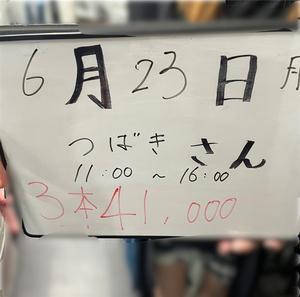 6月23日
つばきさん
11:00 ~ 16:00
3本41,000